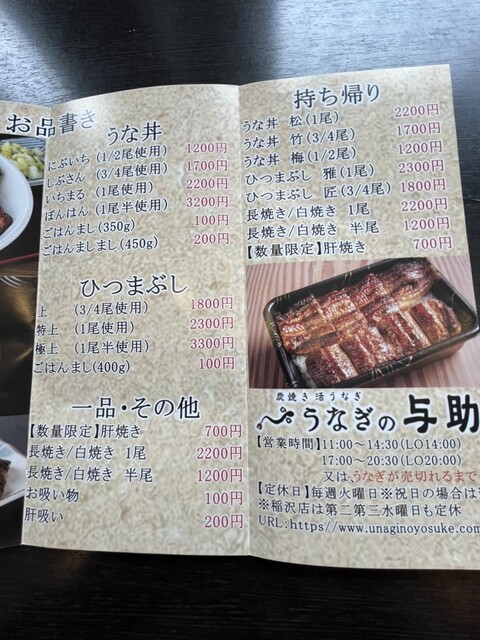 お品書き
うな丼
にぶいち (1/2尾使用) 1200円
しぶさん (3/4尾使用) 1700円
いちまる (1尾使用) 2200円
ぽんはん (1尾半使用) 3200円
ごはんまし(350g) 100円
ごはんましまし(450g) 200円
ひつまぶし
上 (3/4尾使用) 1800円
特上 (1尾使用) 2300円
極上 (1尾半使用) 3300円
ごはんまし(400g) 100円
一品・その他
【数量限定】肝焼き 700円
長焼き/白焼き 1尾 2200円
長焼き/白焼き 半尾 1200円
お吸い物 100円
肝吸い 200円
持ち帰り
うな丼 松(1尾) 2200円
うな丼 竹(3/4尾) 1700円
うな丼 梅(1/2尾) 1200円
ひつまぶし 雅(1尾) 2300円
ひつまぶし 匠(3/4尾) 1800円
長焼き/白焼き 1尾 2200円
長焼き/白焼き 半尾 1200円
【数量限定】肝焼き 700円
炭焼き活うなぎ
うなぎの与助
【営業時間】11:00~14:30(LO14:00)
17:00~20:30(LO20:00)
又はうなぎが売切れるまで
【定休日】毎週火曜日※祝日の場合は
※稲沢店は第二第三水曜日も定休
URL:https//www.unaginoyosuke.com